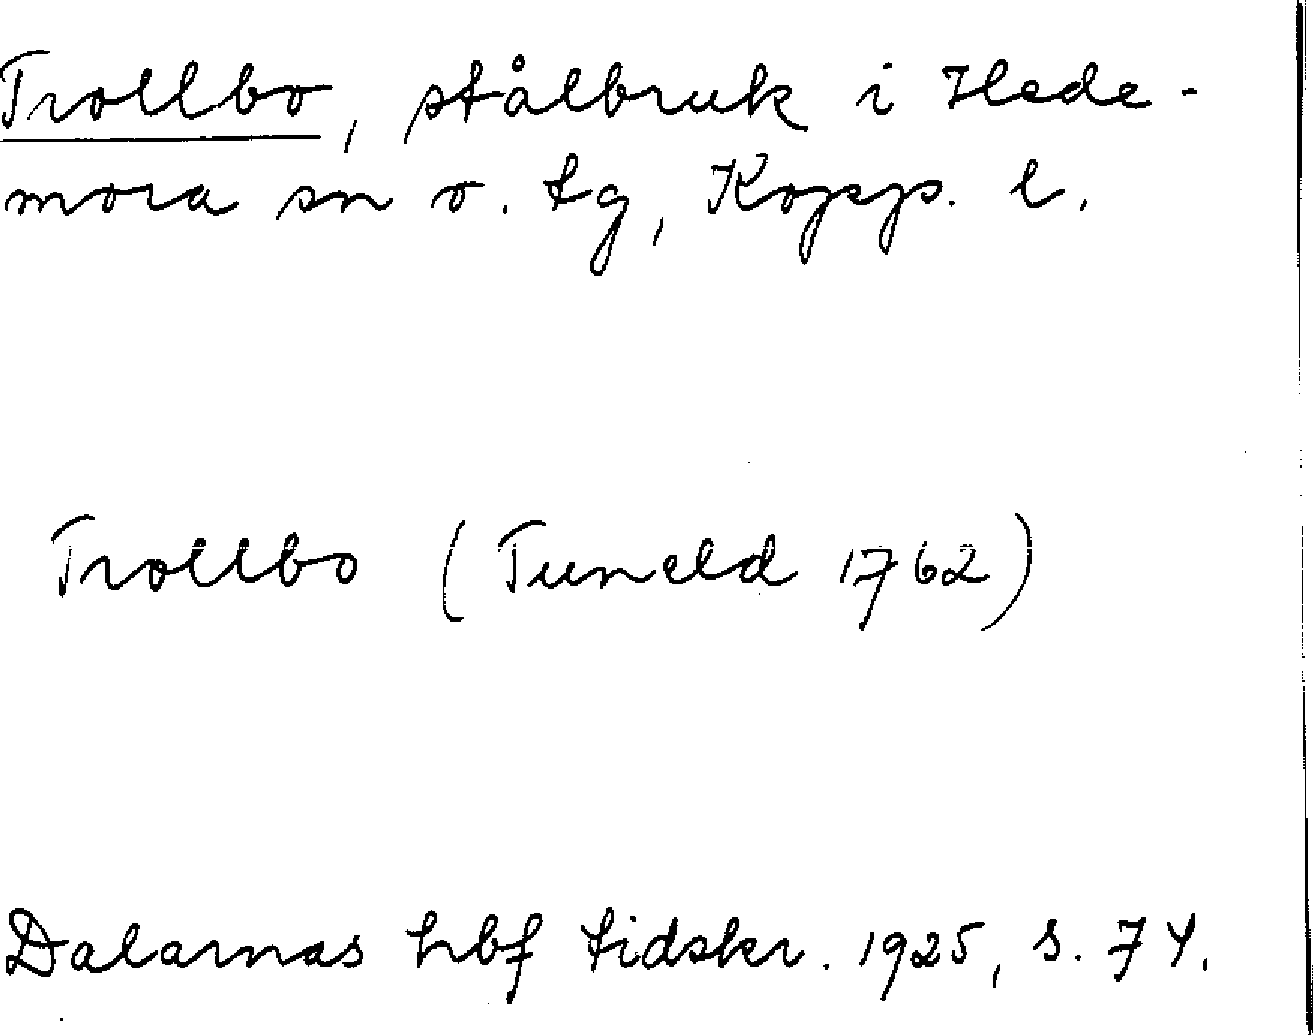 Trollbo, stålbruk i Hede-
mora sn o. tg, Kopp. l.
Trollbo (Tuneld 1762)
Dalarnas hbf tidskr. 1925, s. 74.